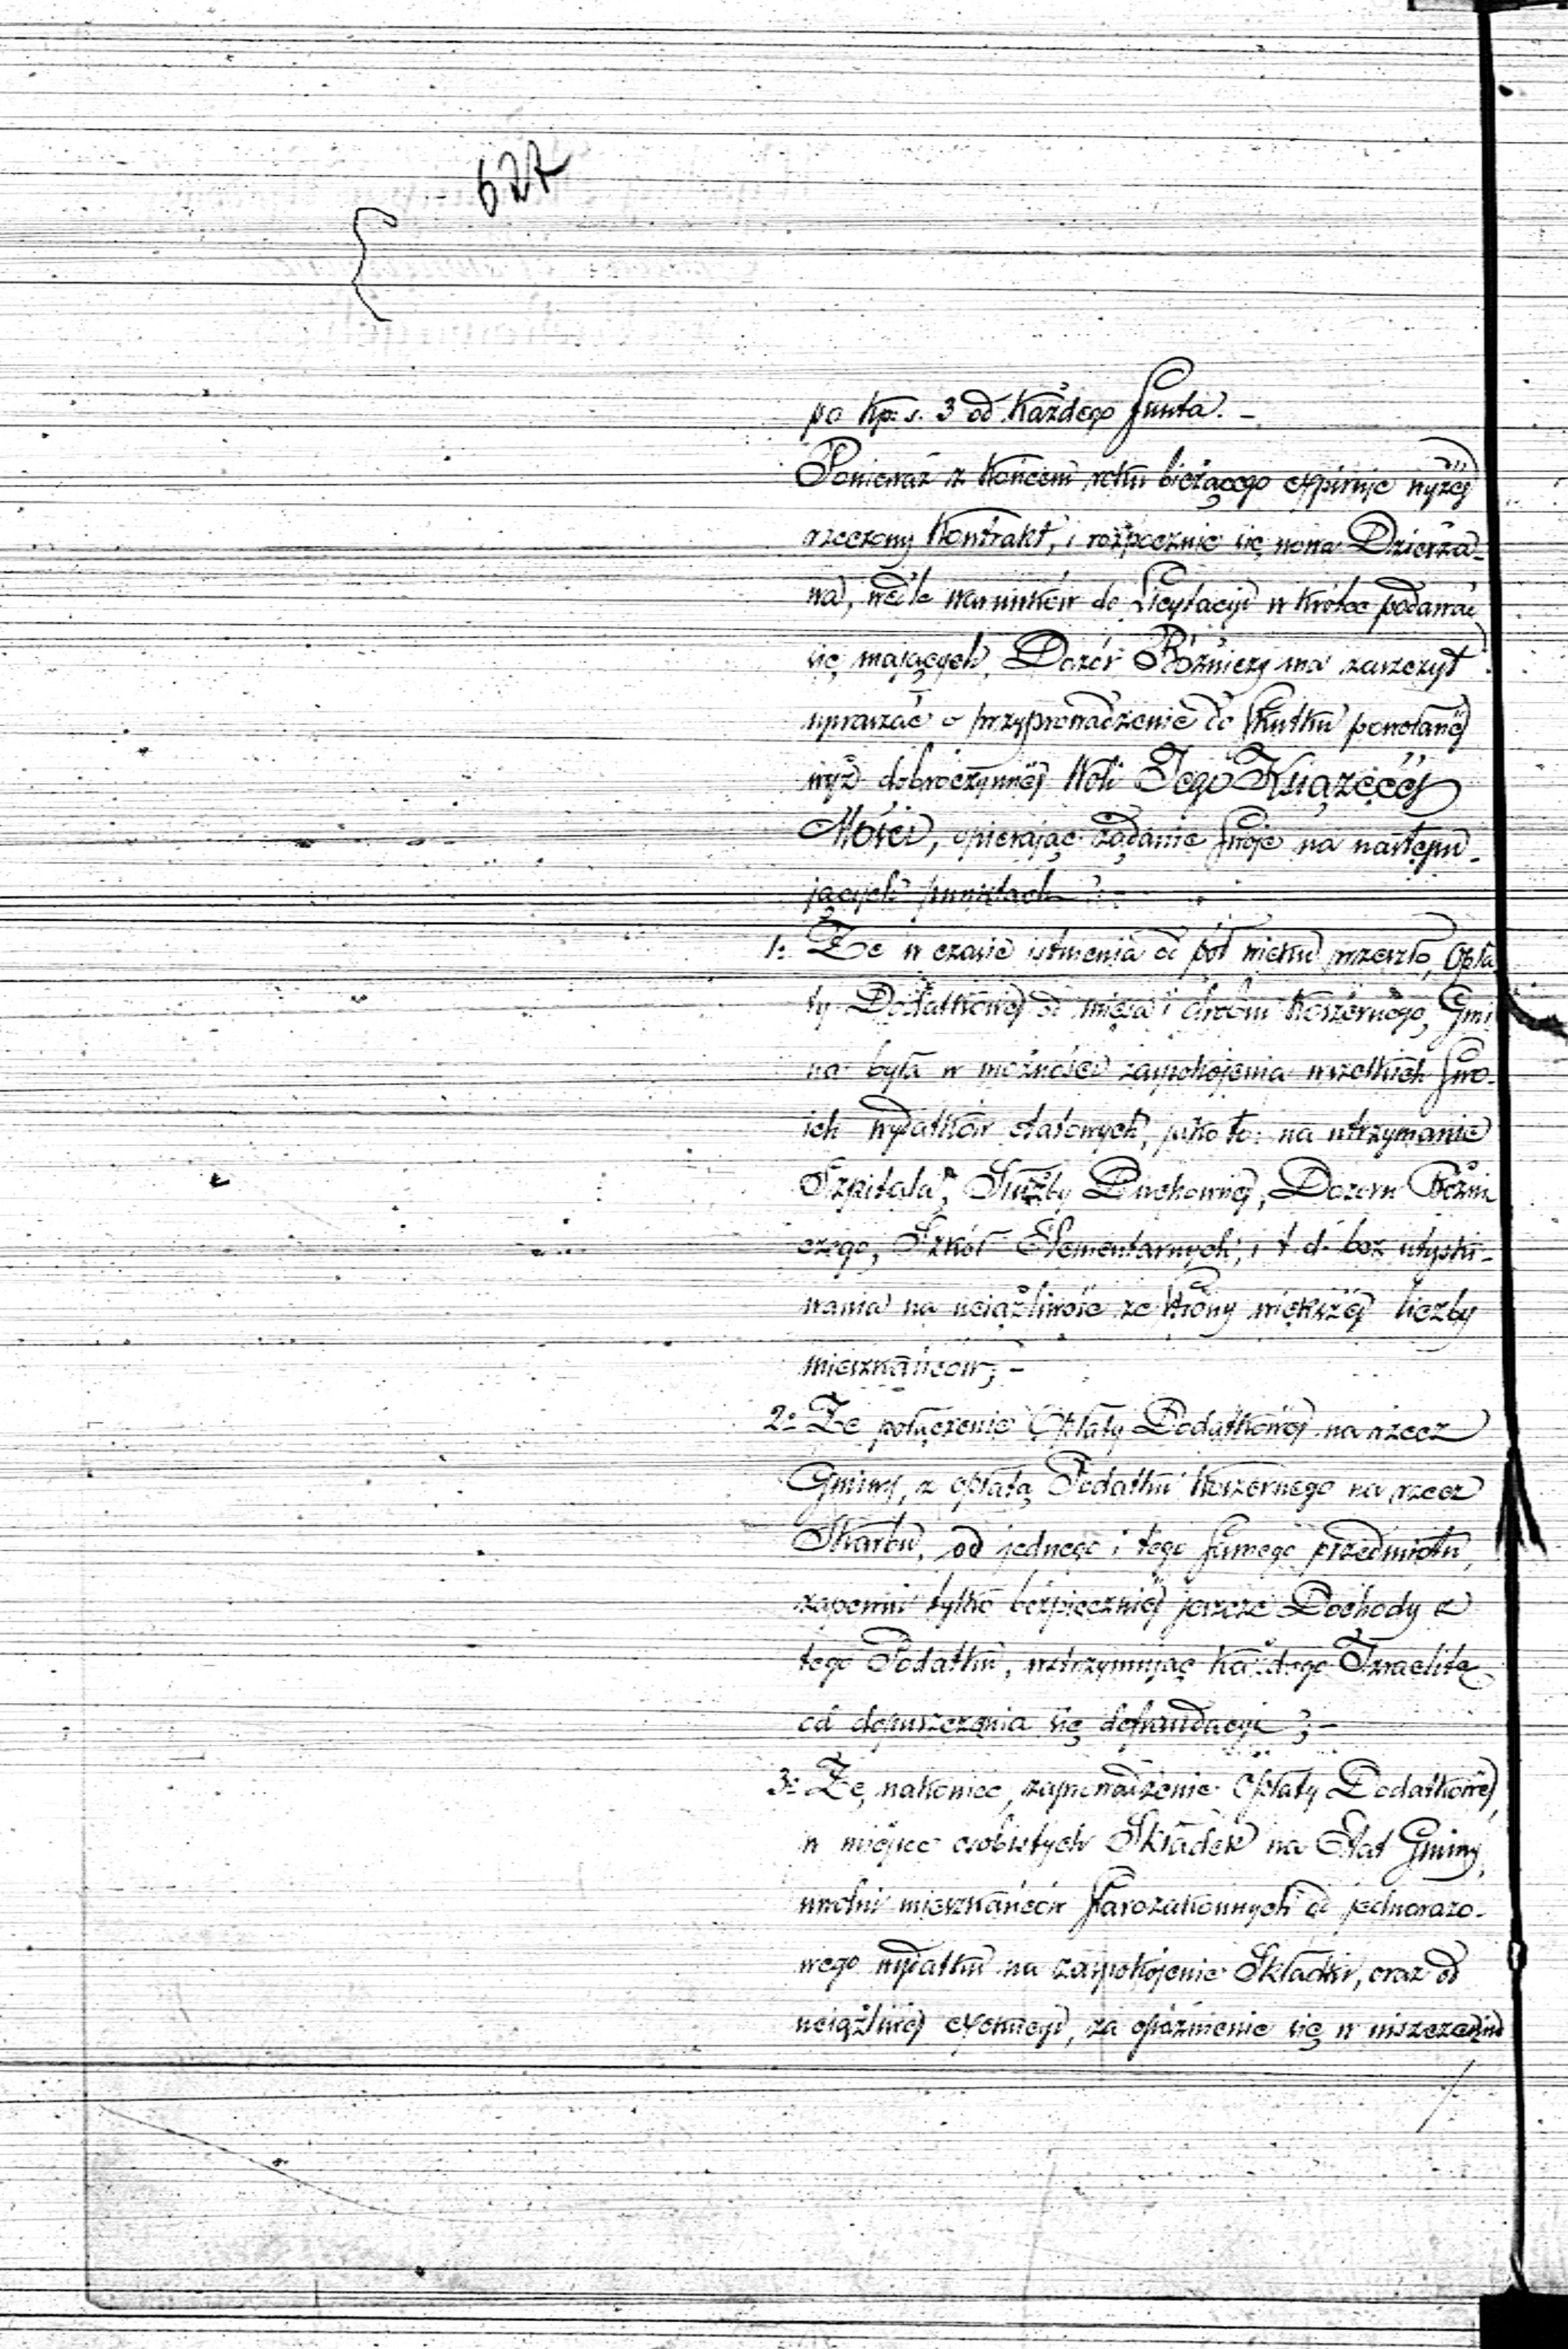 627
po kp. s. 3 od każdego funta. -
Ponieważ z końcem roku bieżącego expiruje wyżej
rzeczony Kontrakt, i rozpocznie się nowa Dzierża-
wa, wedle warunków do Licytacyi w krótce podawać
się mających, Dozór Bóżniczy ma zaszczyt
upraszać o przyprowadzenie do skutku powołanéj
wyż dobroczynnéj Woli Jego Książęcéj
Mości, opierając żądanie swoje na następu-
jących punktach: -
1: Że w czasie istnienia od pół wieku przeszło, Opła
ty Dodatkowéj od mięsa i drobiu koszernego, Gmi
na była w możności zaspokojenia wszelkich swo-
ich wydatków etatowych, jako to: na utrzymanie
Szpitala, Służby Duchownéj, Dozoru Bóżni
czego, Szkół Elementarnych, i t. d. bez utyski-
wania na uciążliwość ze strony większéj liczby
mieszkańców; -
2: Że połączenie Opłaty Dodatkowéj na rzecz
Gminy, z opłatą Podatku koszernego na rzecz
Skarbu, od jednego i tego samego przedmiotu,
zapewni tylko bezpieczniéj jeszcze Dochody z
tego Podatku, wstrzymując każdego Izraelitę
od dopuszczenia się defraudacyi; -
3: Że, nakoniec, zaprowadzenie Opłaty Dodatkowéj,
w miejsce osobistych Składek na Etat Gminy,
uwolni mieszkańców starozakonnych od jednorazo-
wego wydatku na zaspokojenie Składki, oraz od
uciążliwéj exekucyi, za opóźnienie się w uiszczeniu